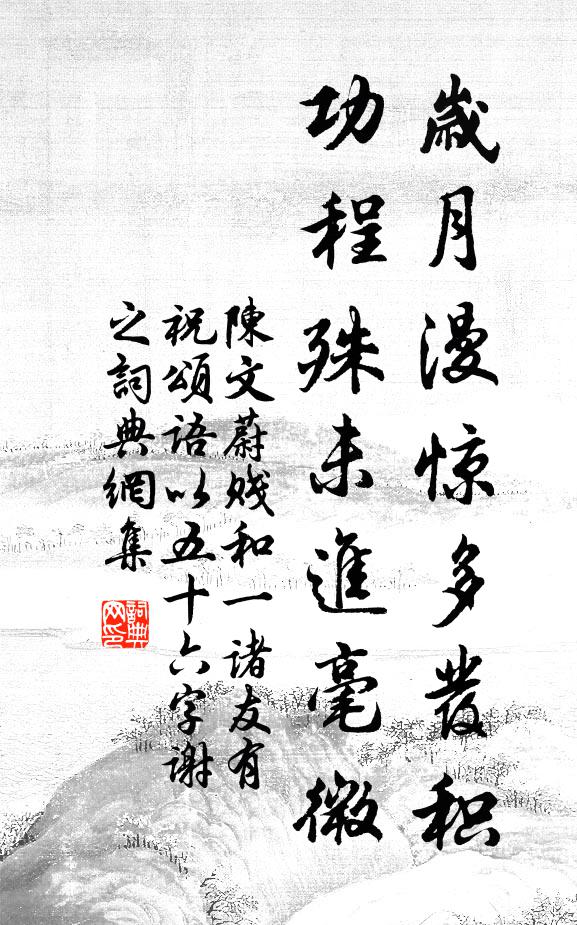 歲月漫惊多發积
功程殊未進毫微
陳文蔚贱和一诸友有
祝頌語以五十六字谢
之詞典網集
詞典
网印